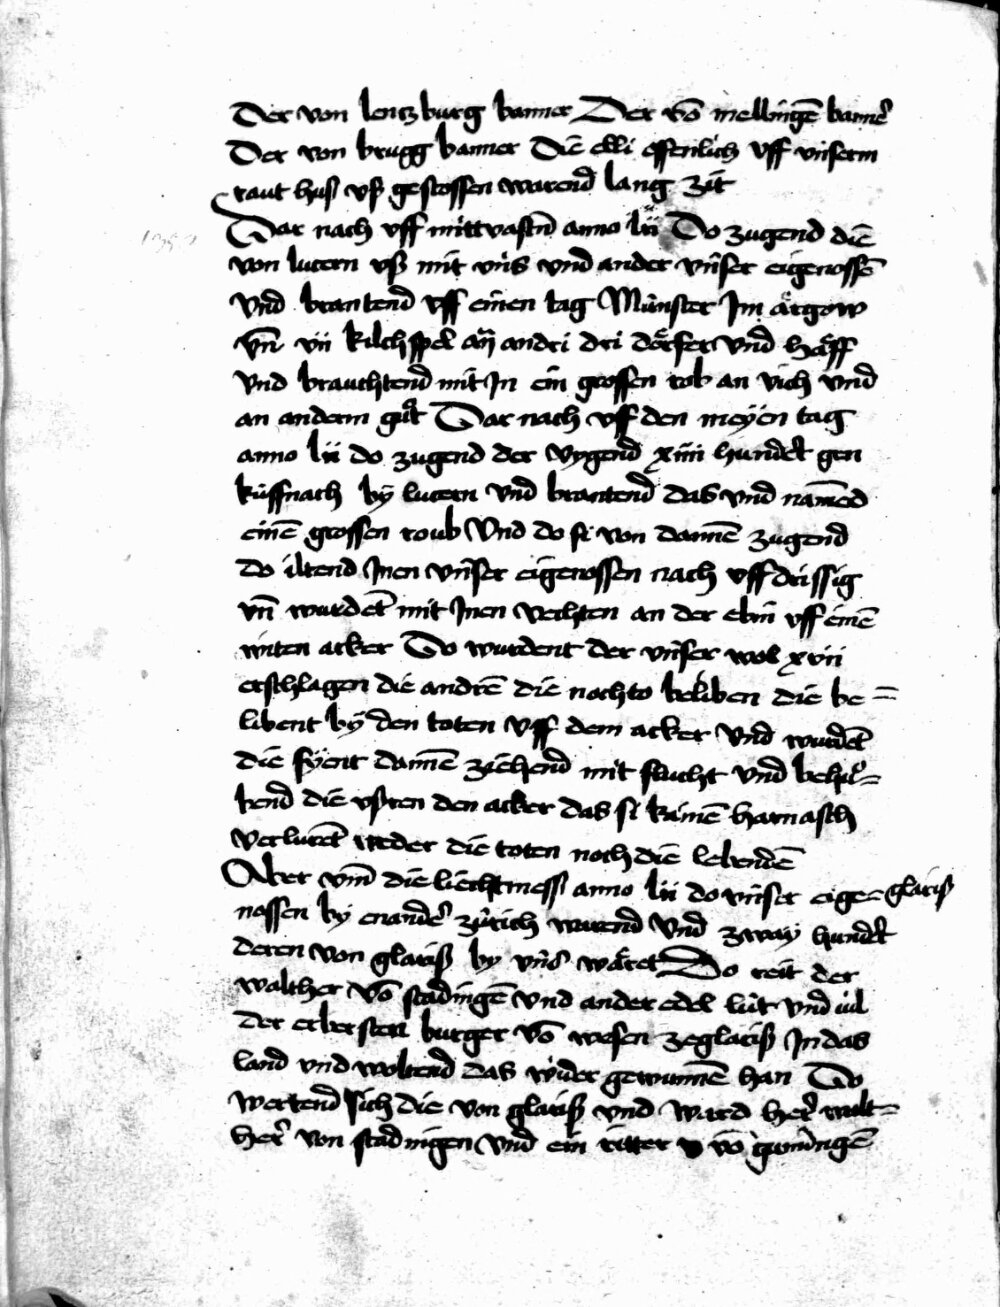 Der von lentzburg banner Der võ mellingẽ baner̃
Der von brugg banner Die elli offenlich vff vnserm
raut hus vß gestossen warend lang zit
Dar nach vff mittvasten anno lii Do zugend die
von lucern vß mit vns vnd ander vnser eigenossẽ
vnd brantend vff einen tag Münster Jm ärgow
vñ vii kilchspel añ andri dri dörfer vnd höff
vnd brauchtend mit Jn ein grossen rob an vich vnd
an anderm gůt Dar nach vff den meyen tag
anno lii do zugend der vygend xiiii hundert gen
küssnach by lucern vnd brantend das vnd namẽd
einẽ grossen roub Vnd do si von dannẽ zugend
do iltend Jnen vnser eigenossen nach vff drissig
vñ wurdẽt mit Jnen vechten an der ebni vff einẽ
witen acker Do wurdent der vnser wol xvii
erschlagen die andrẽ die nochto beliben die be=
libent by den toten vff dem acker vnd wurdẽt
die fyent dannẽ ziehend mit flucht vnd behů=
bend die vnsren den acker das si keinẽ harnasch
verlurẽt weder die toten noch die lebendẽ
Aber vm̃ die liechtmess anno lii do vnser eige=
glariß
nossen by enander̃ zürich warend vnd zway hundert
deren von glariß by vns wärẽt Do reit der
walther võ stadingẽ vnd ander edel lüt vnd vil
der erbersten burger võ wesen ze glariß Jn das
land vnd woltend das wider gewunnẽ han Do
wertend sich die von glariß vnd ward her̃ walt=
her̃ von stadingen vnd ein ritter võ